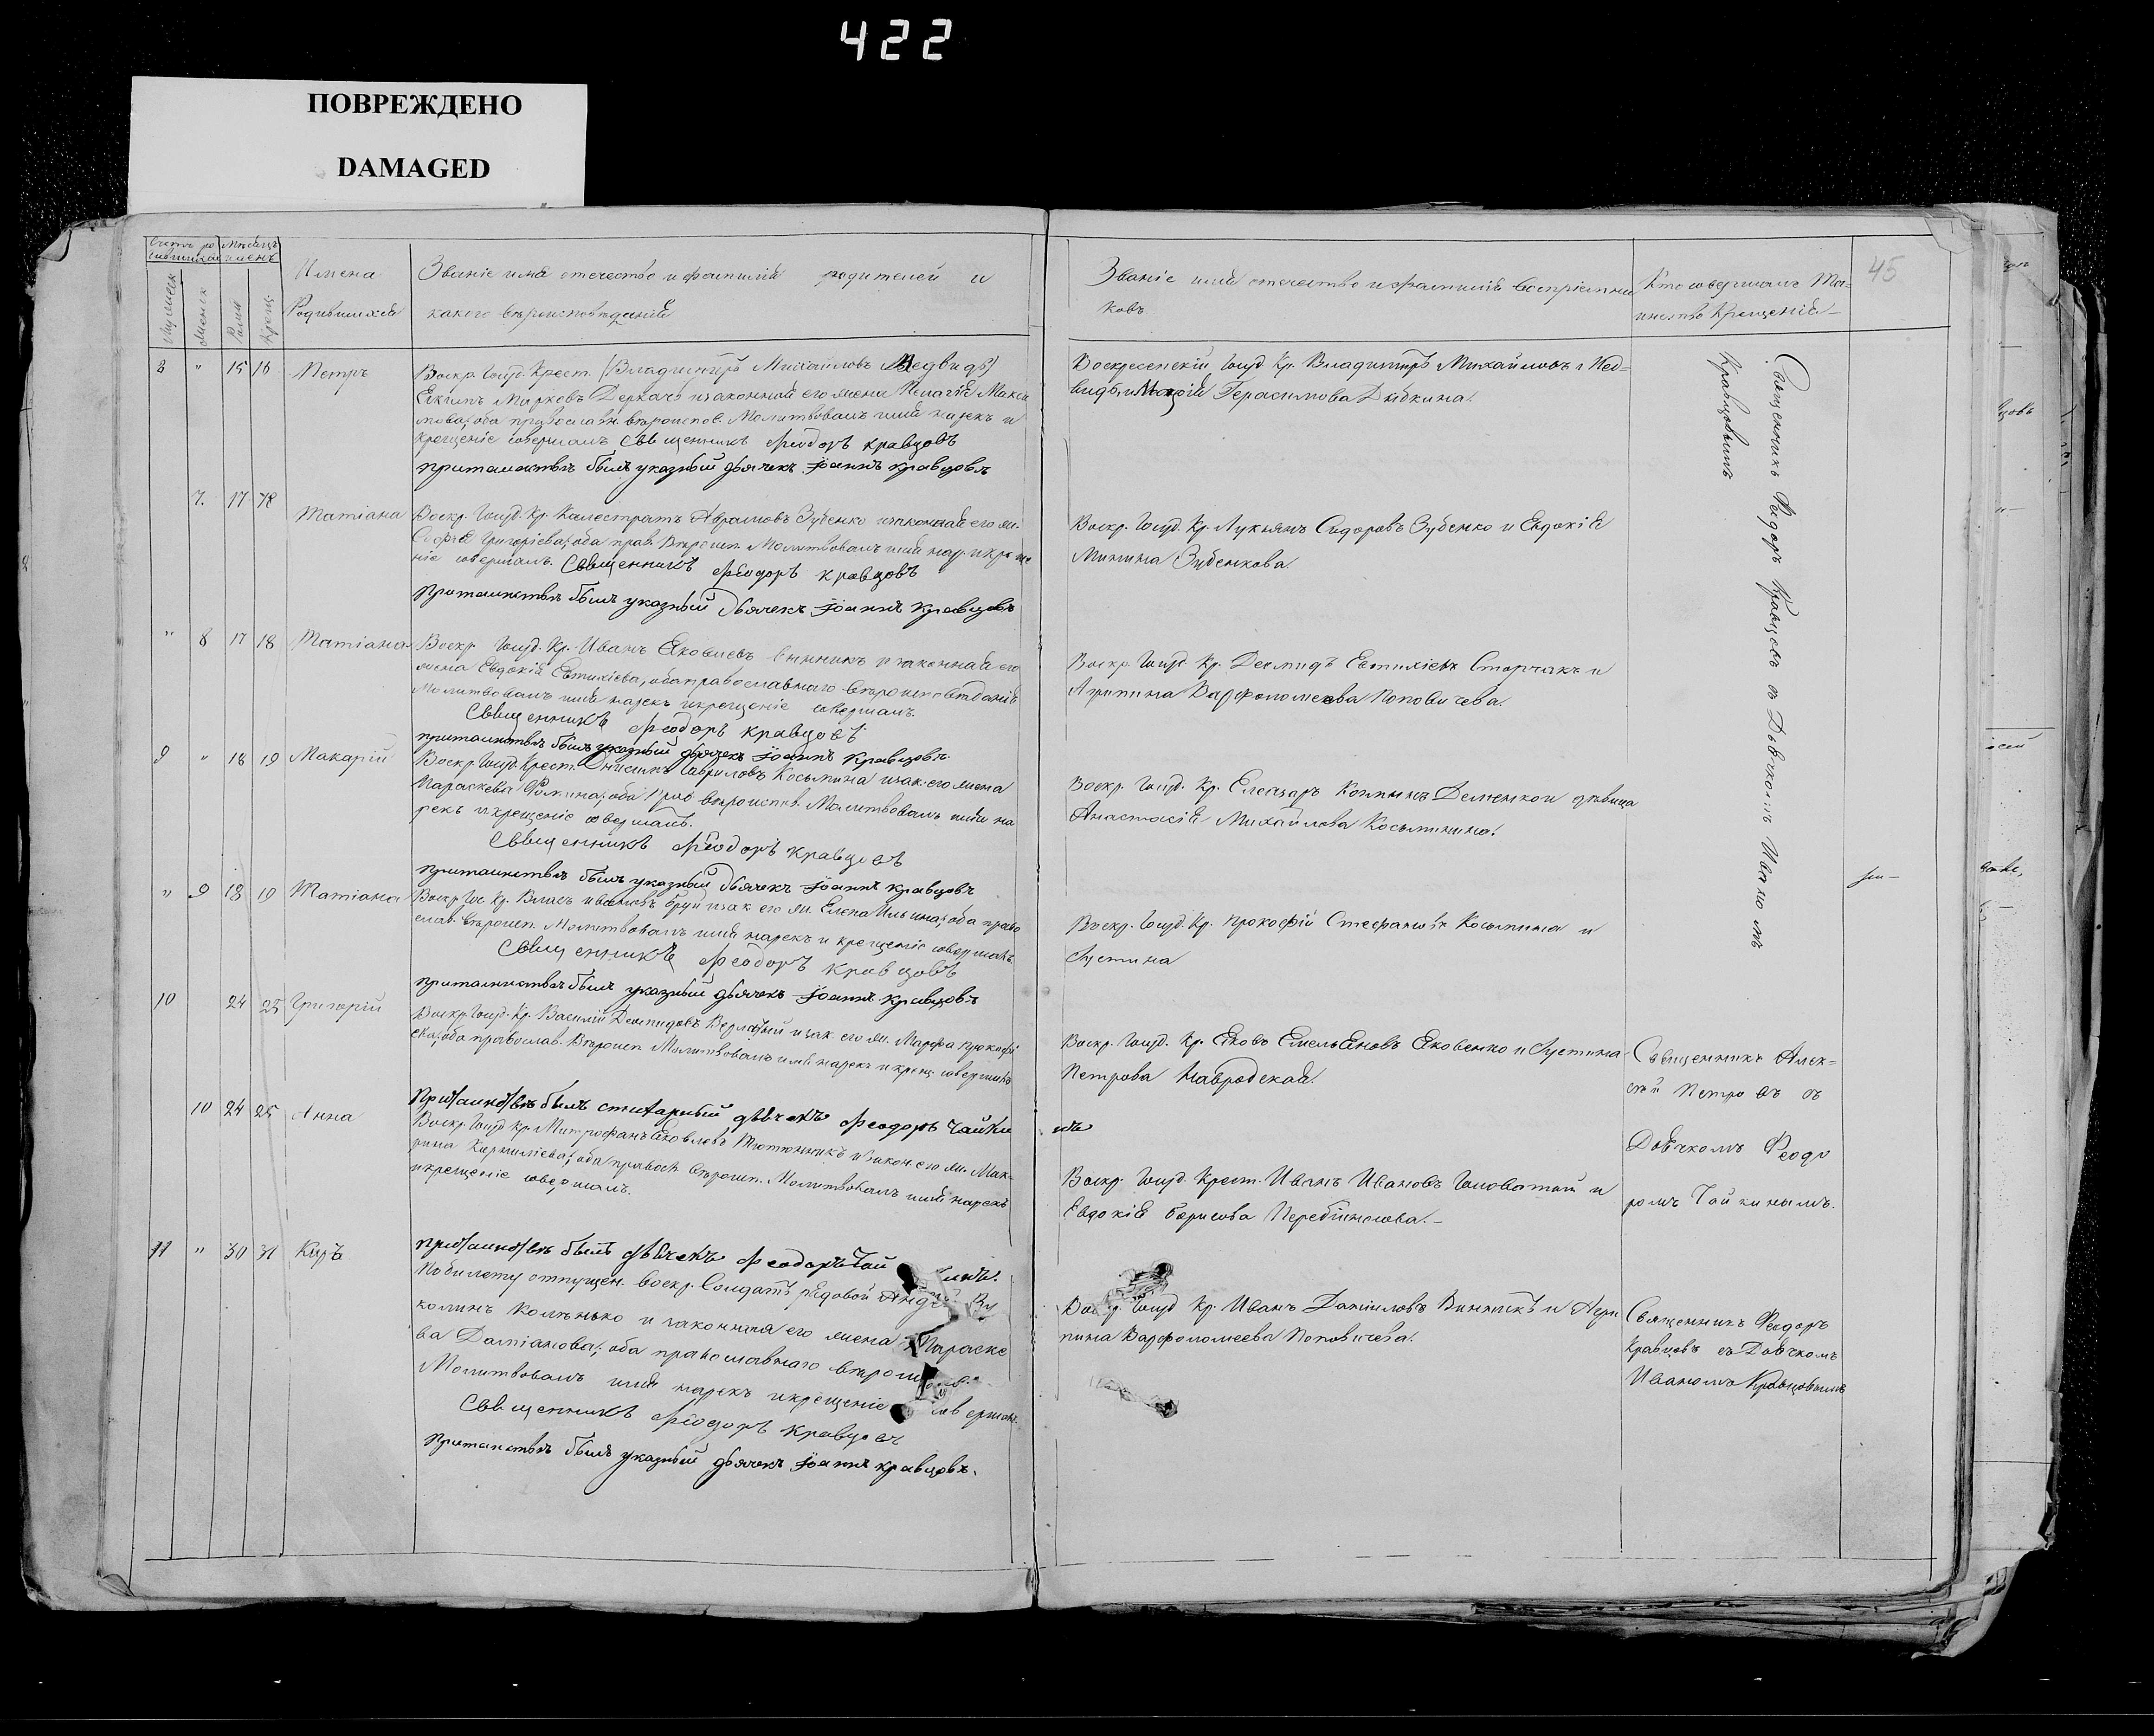 422
ПОВРЕЖДЕНО
DAMAGED
45
Имена
Родившихся
Званіе имя отечество и фамилія родителей и
какого вѣроисповѣданія
Званіе имя отечество и фамилія воспріемни
ковъ
Кто совершалъ Та-
инство Крещенія
15 16 Петръ
Воскр. Госуд. Крест. (Владиміръ Михайловъ Медвидь)
Екимъ Марковъ Деркачъ изаконная его жена Пелагія Макси
мова; оба православн. вѣроиспов. Молитвовалъ имя нарекъ и
крещеніе совершалъ Священникъ Ѳеодоръ Кравцовъ
Притаинствѣ былъ указный дьячекъ Іоаннъ Кравцовъ
Воскресенскій Госуд. Кр. Владиміръ Михайловъ Мед-
видь и Герасимова Дядкина.
Священникъ Федоръ Кравцовъ съ Дьячкомъ Иваномъ
Кравцовымъ
7. 17 18
Матіана Воскр. Госуд. Кр. Калистратъ Аврамовъ Зубенко изаконная его ж.
Софія Григоріева; оба прав. Вѣроисп. Молитвовалъ имя нар. и креще
ніе совершалъ. Священникъ Ѳеодоръ Кравцовъ
Притаинствѣ былъ указный Дьячекъ Іоаннъ Кравцовъ
Воскр. Госуд. Кр. Лукьянъ Сидоровъ Зубенко и Евдокія
Минина Зубенкова.
" 8 17 18 Матіана
Воскр. Госуд. Кр. Иванъ Яковлевъ Винникъ и законная его
жена Евдокія Евтихіева, оба православнаго вѣроисповѣданія
Молитвовалъ имя нарекъ икрещеніе совершалъ.
Священникъ Ѳеодоръ Кравцовъ
притаинствѣ былъ указный дьячекъ Іоаннъ Кравцовъ.
Воскр. Госуд. Кр. Деомидъ Евтихіевъ Сторчакъ и
Агрипина Варфоломеева Поповичева.
9 " 18 19 Макарій
Воскр. Госуд. Крест. Онисимъ Гавриловъ Косьмина изак. его жена
Параскевія Фомина; оба прав вѣроиспов. Молитвовалъ имя на
рекъ икрещеніе совершалъ.
Священникъ Ѳеодоръ Кравцовъ
притаинствѣ былъ указный дьячекъ Іоаннъ Кравцовъ
Воскр. Госуд. Кр. Елеазаръ Деменкои дѣвица
Анастасія Михайлова Косьминина.
" 9 18 19 Матіана
Воскр. Гос. Кр. Власъ Ивановъ изак. его ж. Елена Ильина; оба право
слав. вѣроисп. Молитвовалъ имя нарекъ и крещеніе совершалъ.
Священникъ Ѳеодоръ Кравцовъ
притаинствѣ былъ указный дьячекъ Іоаннъ Кравцовъ
Воскр. Госуд. Кр. Прокофій Стефановъ Косьмина и
Іустина
10 24 25 Григорій
Воскр. Госуд. Кр. Василій Деомидовъ изак. его ж. Марфа Прокофі
ева; оба православ. Вѣроисп. Молитвовалъ имя нарекъ и крещ. совершалъ
Притаинствѣ былъ стихарный дьячекъ Ѳеодоръ Чайки
нъ
Воскр. Госуд. Кр. Яковъ Емельяновъ Яковенко и Іустина
Петрова Навродская.
Священникъ Алек-
сѣй Петровъ съ
Дьячкомъ Феодо
ромъ Чайкинымъ.
10 24 25 Анна
Воскр. Госуд. Кр. Митрофанъ Яковлевъ Тютюнникъ изакон. его ж. Мак-
рина Корниліева; оба правосл. вѣроисп. Молитвовалъ имя нарекъ
икрещеніе совершалъ.
притаинствѣ былъ дьячекъ Ѳеодоръ
Воскр. Госуд. Крест. Иванъ Ивановъ Головатый и
Евдокія Борисова
11 " 30 31 Киръ
Побилету отпущен. воскр. Солдатъ рядовой
Коленько и законная его жена Параске
ва Даміанова; оба православнаго
Молитвовалъ имя нарекъ икрещеніе совершалъ.
Священникъ Ѳеодоръ Кравцовъ
притаинствѣ былъ указный дьячекъ Іоаннъ Кравцовъ.
Госуд. Кр. Иванъ Даніиловъ Винникъ и Агри
пина Варфоломеева Поповичева.
Священникъ Феодоръ
Кравцовъ съ Дьячкомъ
Иваномъ Кравцовымъ